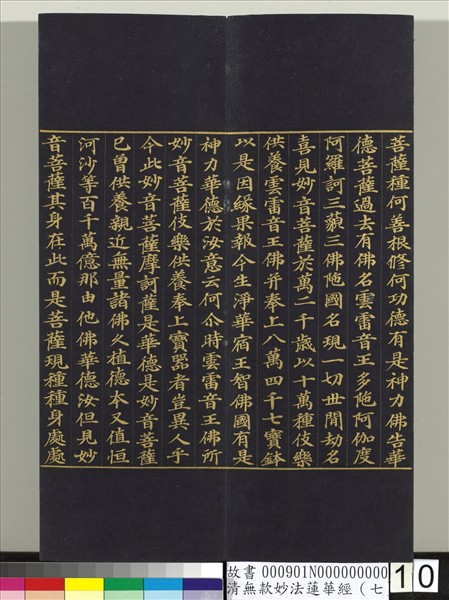 菩薩種何善根修何功德有是神力佛告華
德菩薩過去有佛名雲雷音王多陁阿伽度
阿羅訶三藐三佛陁國名現一切世閒劫名
喜見妙音菩薩於萬二千歲以十萬種伎樂
供養雲雷音王佛并奉上八萬四千七寶鉢
以是因緣果報今生淨華宿王智佛國有是
神力華德於汝意云何尒時雲雷音王佛所
妙音菩薩伎樂供養奉上寶器者豈異人乎
今此妙音菩薩摩訶薩是華德是妙音菩薩
已曾供養親近無量諸佛久植德本又值恒
河沙等百千萬億那由他佛華德汝但見妙
音菩薩其身在此而是菩薩現種種身處處
故書 000901N000000000
清無款妙法蓮華經（七
10